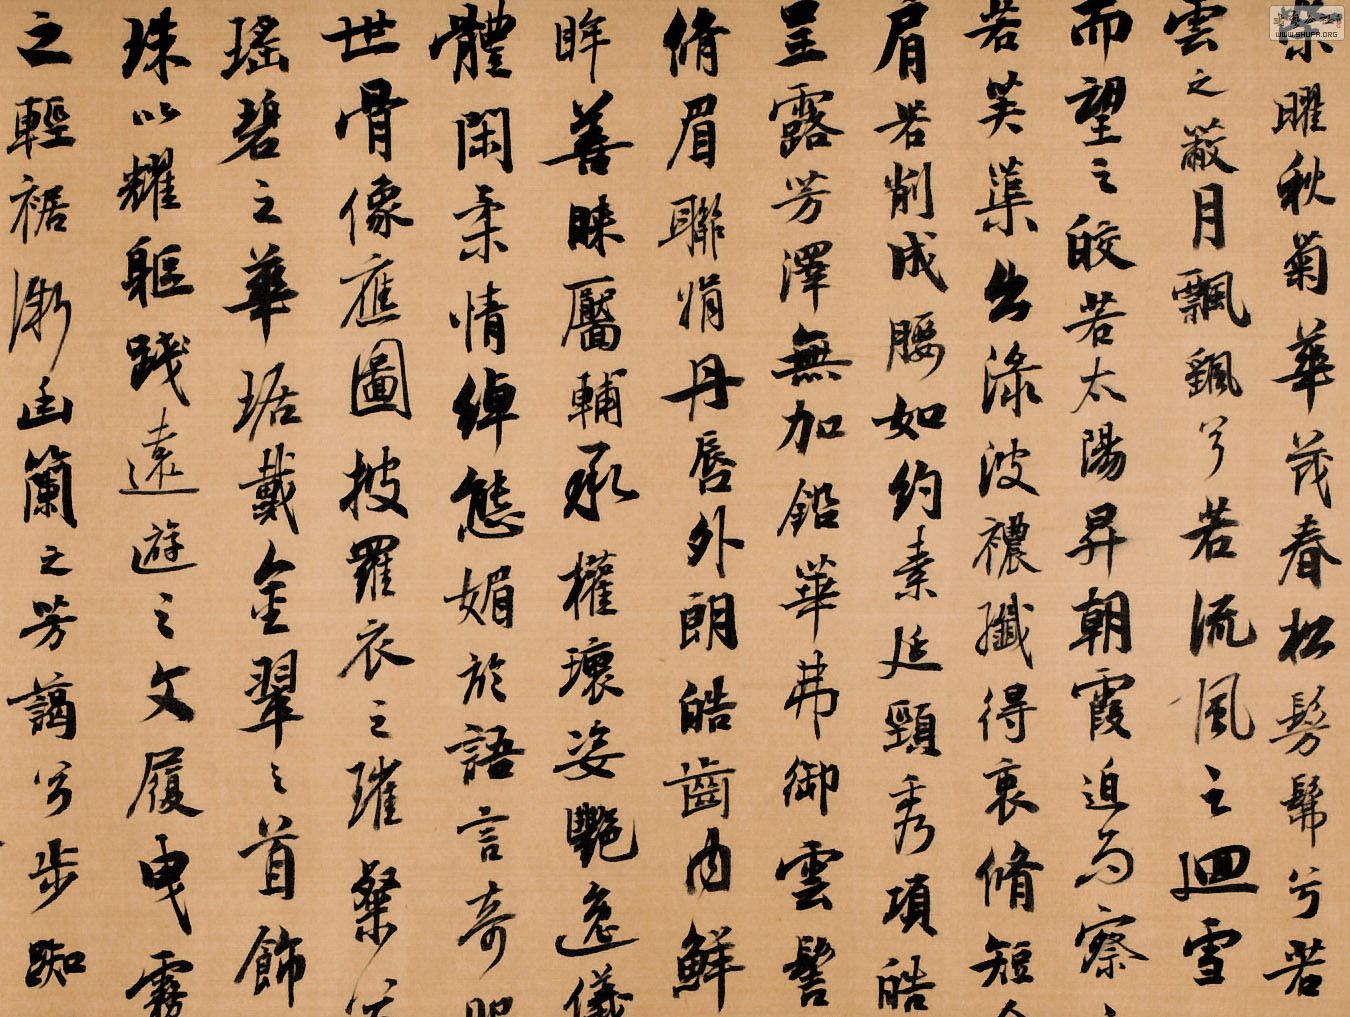 榮曜秋菊華茂春松髣髴兮若
雲之蔽月飄颻兮若流風之迴雪
而望之皎若太陽昇朝霞迫而察
若芙蕖出淥波襛纖得衷脩短
肩若削成腰如約素延頸秀項皓
呈露芳澤無加鉛華弗御雲髻
脩眉聯娟丹唇外朗皓齒內鮮
眸善睞靨輔承權瓌姿艷逸儀
體閑柔情綽態媚於語言奇
世骨像應圖披羅衣之璀粲
瑤碧之華琚戴金翠之首飾
珠以耀軀踐遠遊之文履曳霧
之輕裾微幽蘭之芳藹兮步踟
WWW.SHUFA.ORG